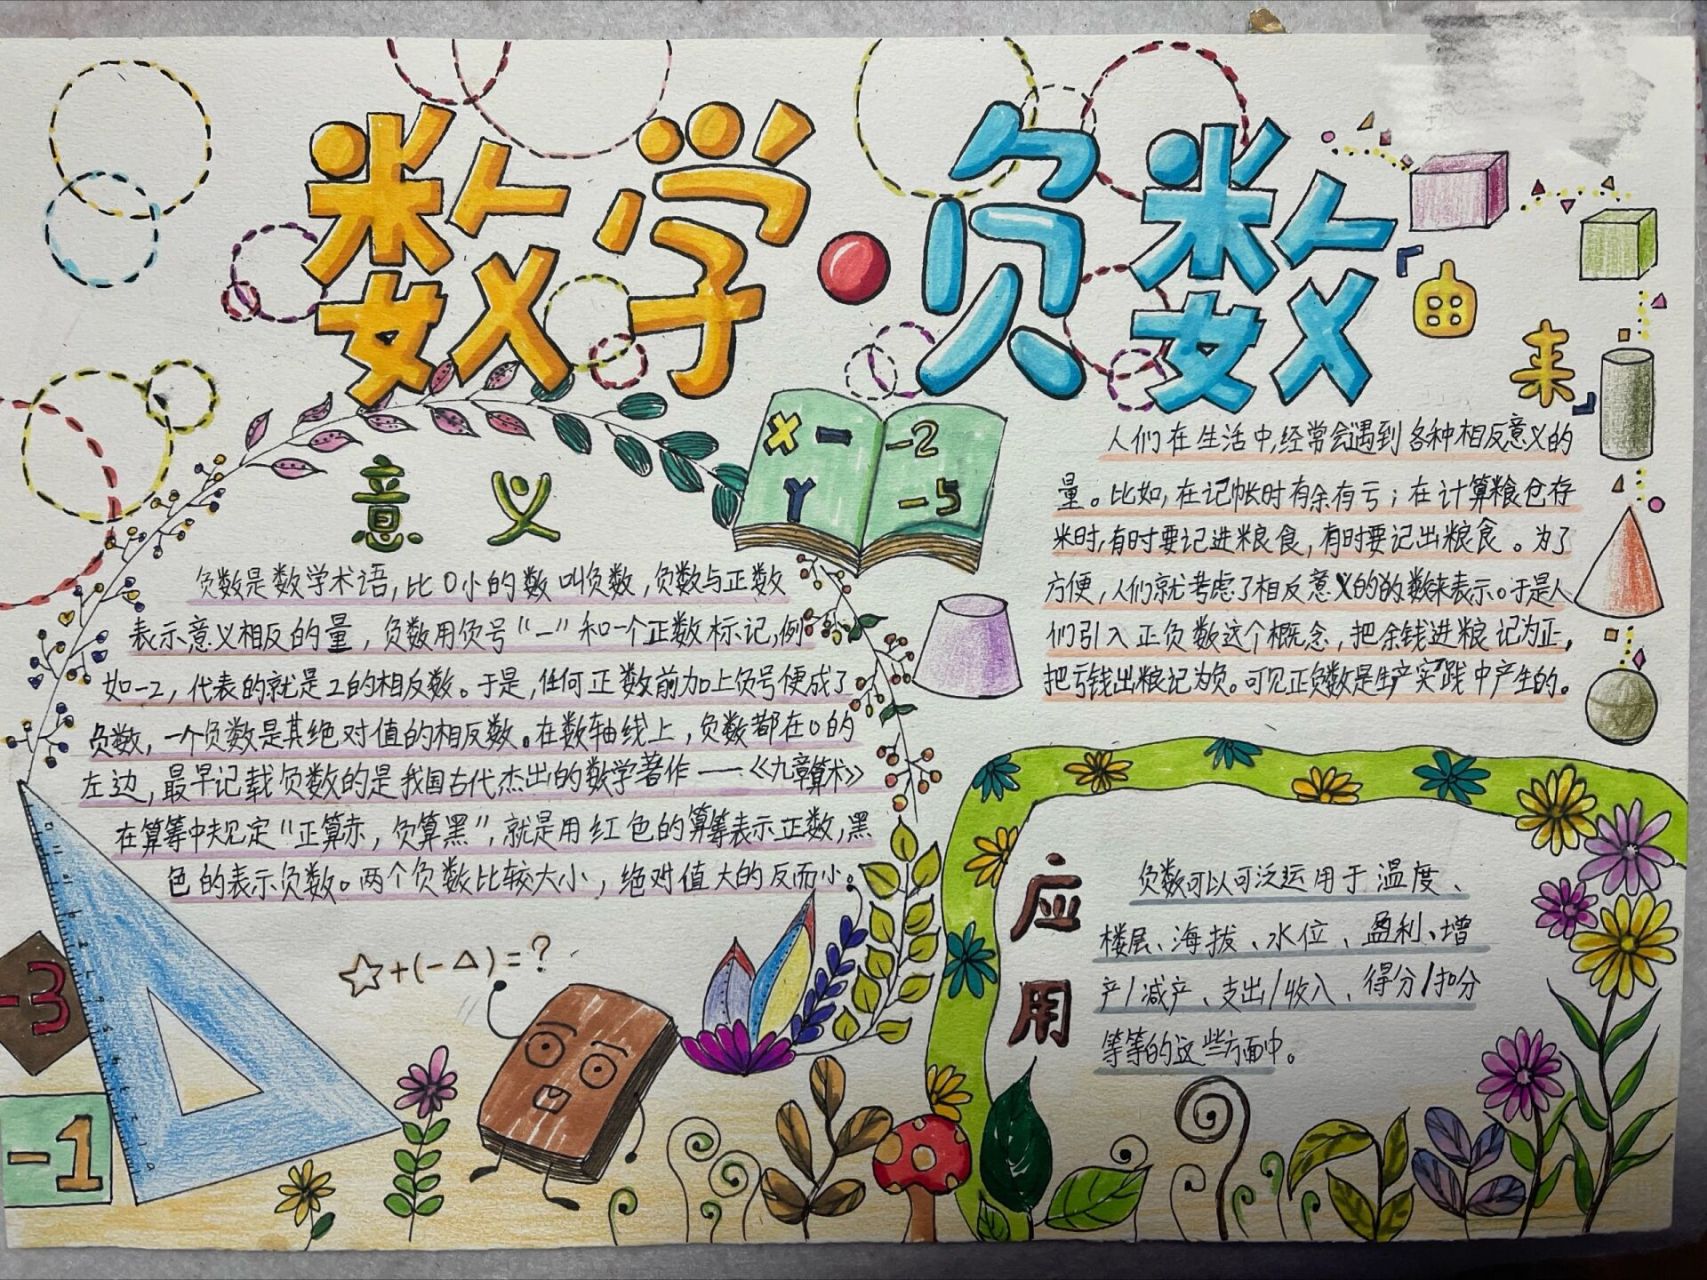 数学·负数
由来
X - -2
Y -5
意义
负数是数学术语,比0小的数叫负数,负数与正数
表示意义相反的量,负数用负号“一”和一个正数标记,例
如-2,代表的就是2的相反数。于是,任何正数前加上负号便成了
负数,一个负数是其绝对值的相反数。在数轴线上,负数都在0的
左边,最早记载负数的是我国古代杰出的数学著作——《九章算术》
在算筹中规定“正算赤,负算黑”,就是用红色的算筹表示正数,黑
色的表示负数。两个负数比较大小,绝对值大的反而小。
人们在生活中,经常会遇到各种相反意义的
量。比如,在记帐时有余有亏;在计算粮仓存
米时,有时要记进粮食,有时要记出粮食。为了
方便,人们就考虑了相反意义的的数来表示。于是人
们引入正负数这个概念,把余钱进粮记为正,
把亏钱出粮记为负。可见正负数是生产实践中产生的。
应用
负数可以可泛运用于温度、
楼层、海拔、水位、盈利、增
产/减产、支出/收入、得分/扣分
等等的这些方面中。
☆+(-△)=?
-3
-1